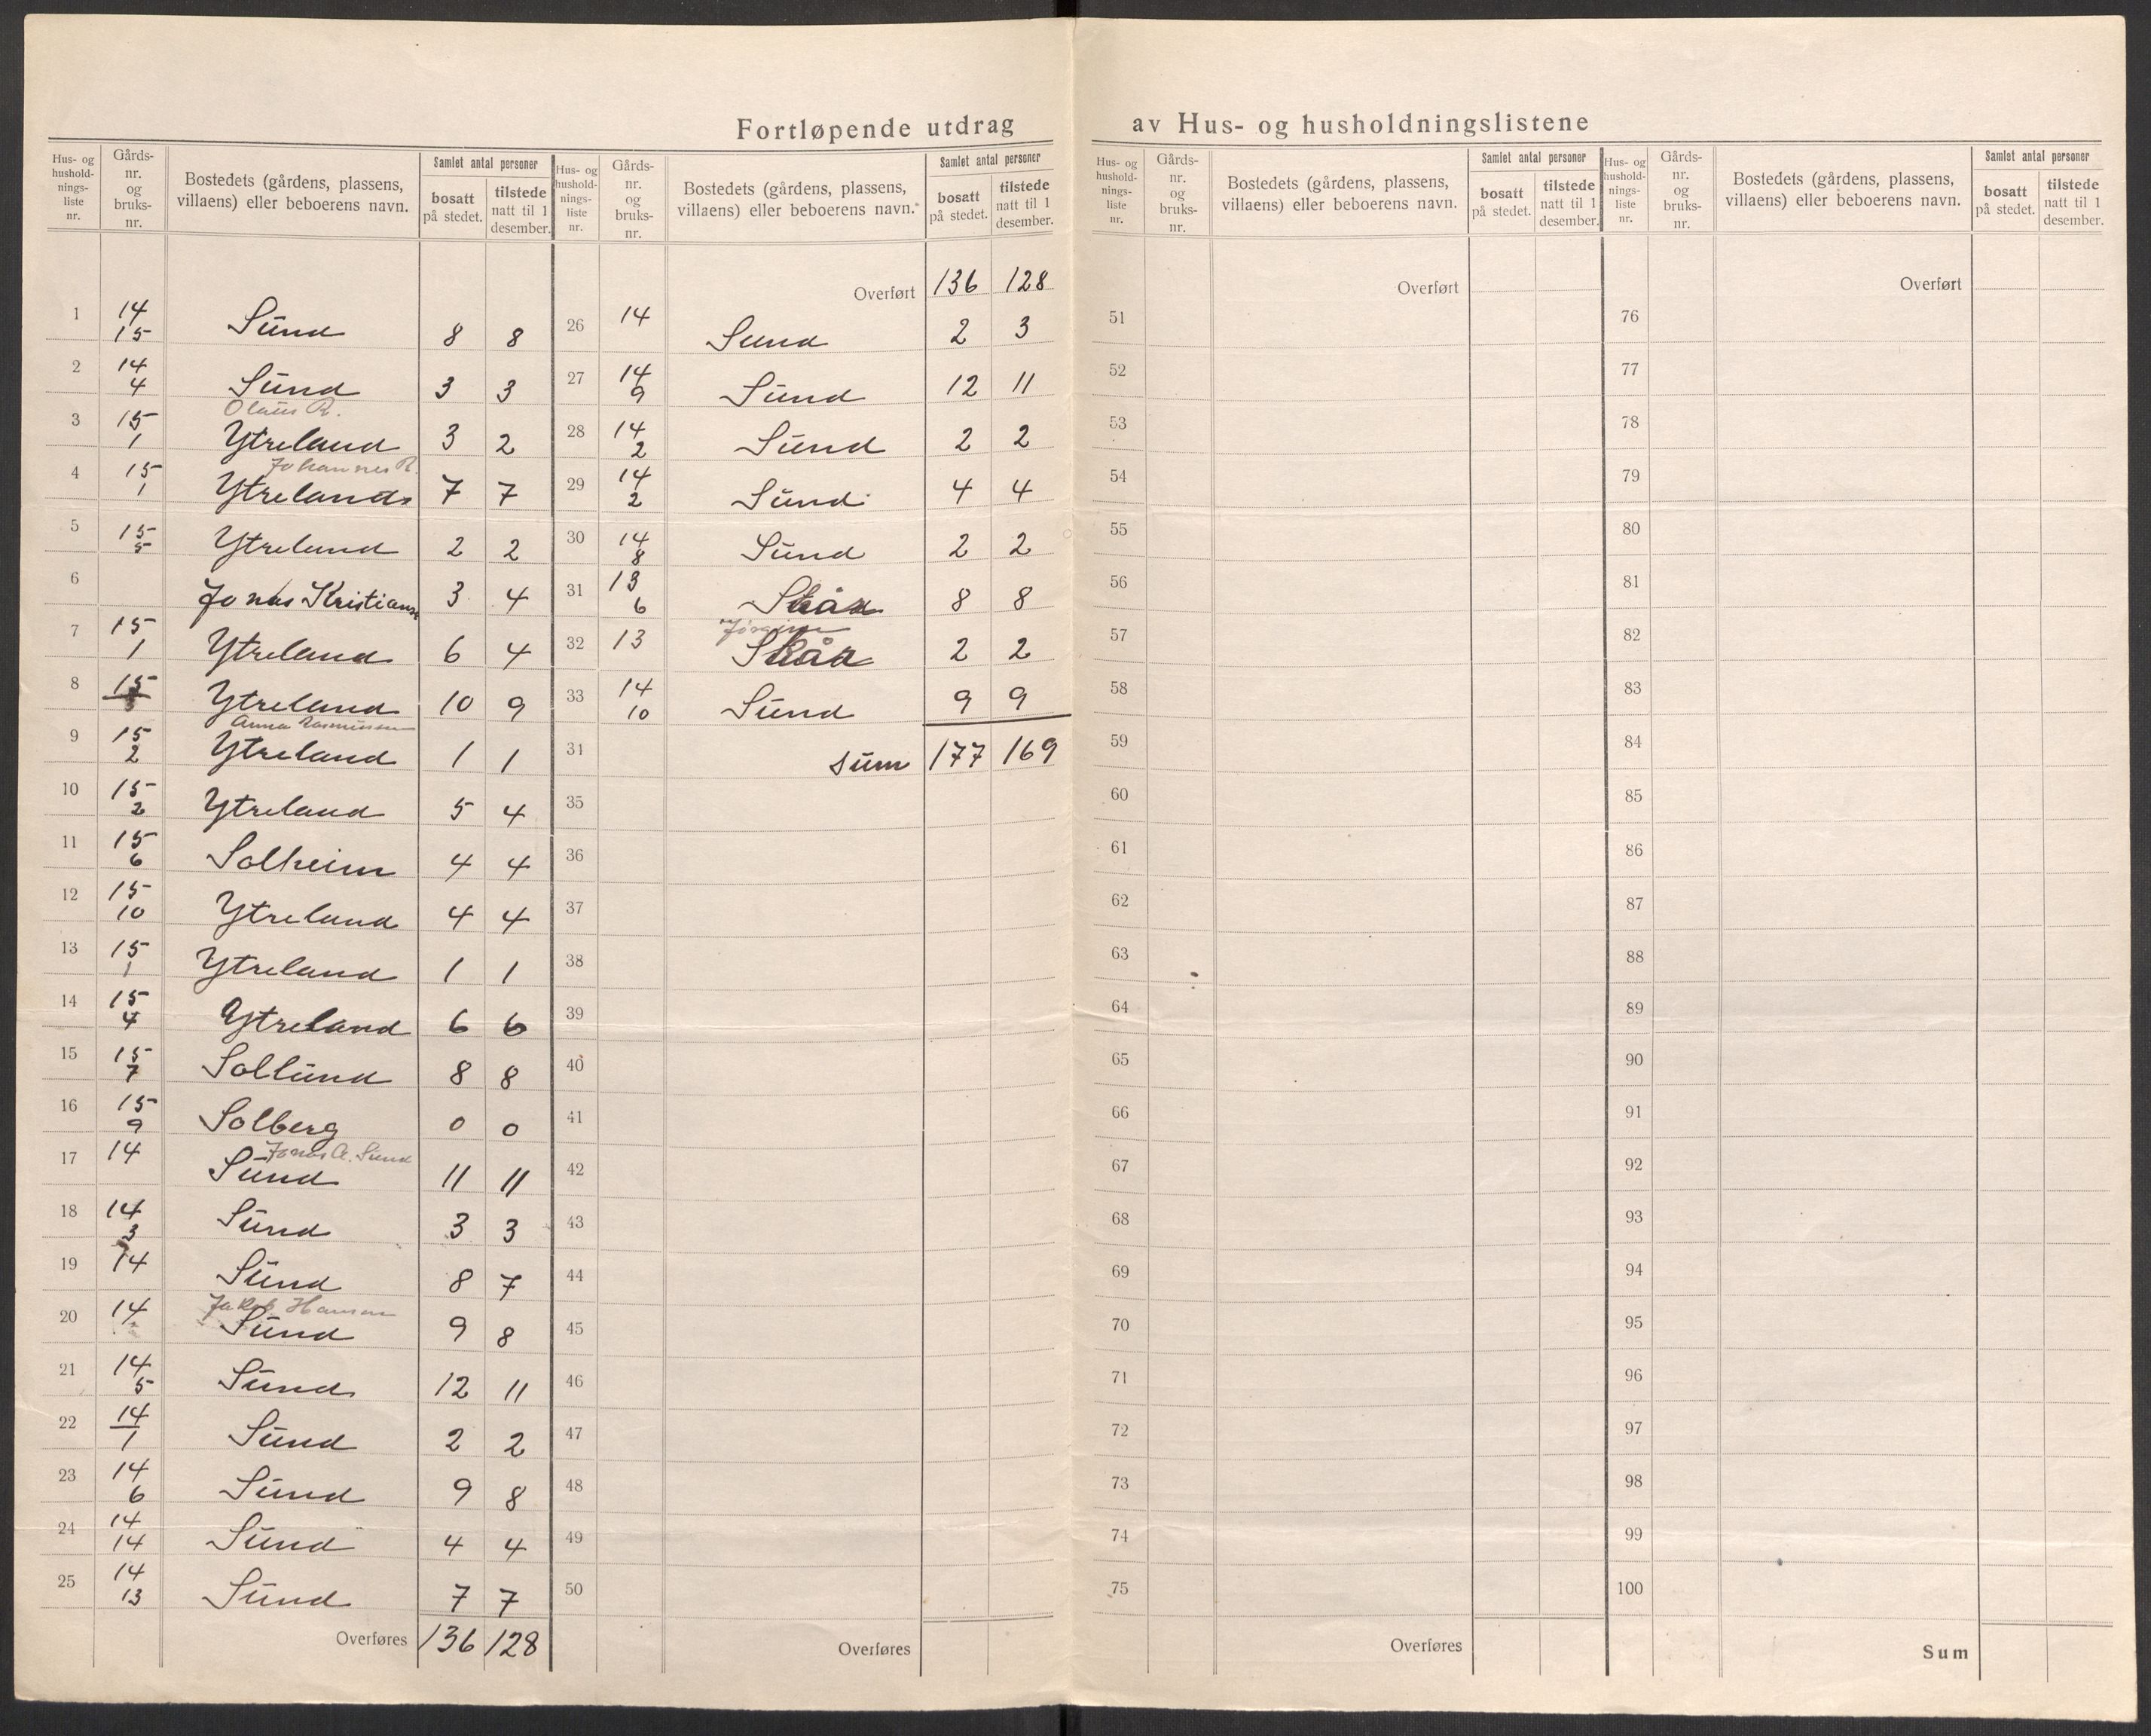 Fortløpende utdrag av Hus- og husholdningslistene
Hus- og hushold-nings-liste nr. | Gårds-nr. og bruks-nr. | Bostedets (gårdens, plassens, villaens) eller beboerens navn. | Samlet antal personer | bosatt på stedet. | tilstede natt til 1 desember.
1 14 15 Sund 8 8
2 14 4 Sund 3 3
Olaus R.
3 15 1 Ytreland 3 2
Johannes R.
4 15 1 Ytreland 7 7
5 15 5 Ytreland 2 2
6 Jonas Kristiansen 3 4
7 15 1 Ytreland 6 4
8 15 Ytreland 10 9
Anna Rasmussen
9 15 2 Ytreland 1 1
10 15 2 Ytreland 5 4
11 15 6 Solheim 4 4
12 15 10 Ytreland 4 4
13 15 1 Ytreland 1 1
14 15 4 Ytreland 6 6
15 15 7 Sollund 8 8
16 15 9 Solberg 0 0
Jonas A. Sund
17 14 Sund 11 11
18 14 3 Sund 3 3
19 14 Sund 8 7
Jakob Hansen
20 14 Sund 9 8
21 14 5 Sund 12 11
22 14 1 Sund 2 2
23 14 6 Sund 9 8
24 14 14 Sund 4 4
25 14 13 Sund 7 7
Overføres 136 128
Hus- og hushold-nings-liste nr. | Gårds-nr. og bruks-nr. | Bostedets (gårdens, plassens, villaens) eller beboerens navn. | Samlet antal personer | bosatt på stedet. | tilstede natt til 1 desember.
Overført 136 128
26 14 Sund 2 3
27 14 9 Sund 12 11
28 14 2 Sund 2 2
29 14 2 Sund 4 4
30 14 8 Sund 2 2
31 13 6 8 8
32 13 2 2
33 14 10 Sund 9 9
34 Sum 177 169
35
36
37
38
39
40
41
42
43
44
45
46
47
48
49
50
Overføres
Hus- og hushold-nings-liste nr. | Gårds-nr. og bruks-nr. | Bostedets (gårdens, plassens, villaens) eller beboerens navn. | Samlet antal personer | bosatt på stedet. | tilstede natt til 1 desember.
Overført
51
52
53
54
55
56
57
58
59
60
61
62
63
64
65
66
67
68
69
70
71
72
73
74
75
Overføres
Hus- og hushold-nings-liste nr. | Gårds-nr. og bruks-nr. | Bostedets (gårdens, plassens, villaens) eller beboerens navn. | Samlet antal personer | bosatt på stedet. | tilstede natt til 1 desember.
Overført
76
77
78
79
80
81
82
83
84
85
86
87
88
89
90
91
92
93
94
95
96
97
98
99
100
Sum